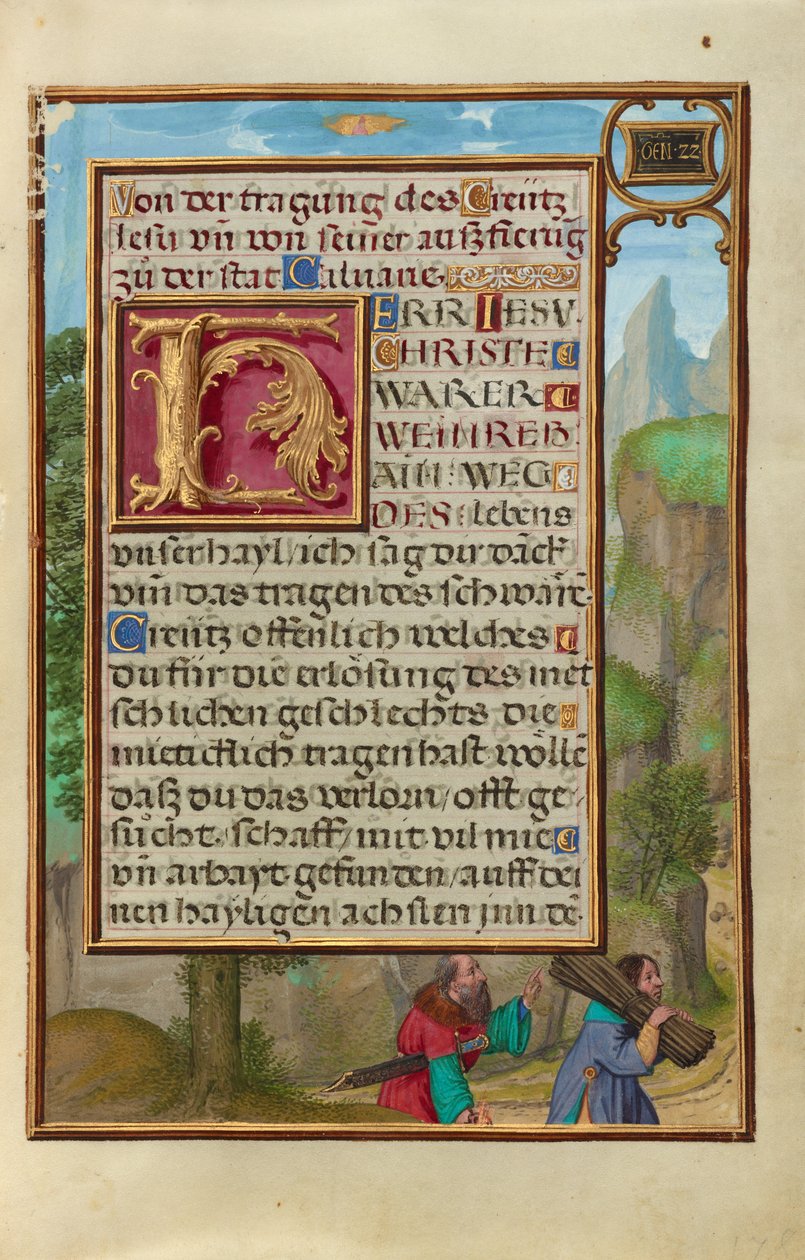 GEN · 22
Von der tragung des Creütz
Jesu vn̄ von seiner auszfierūg
zů der stat Calvarie.
HERR IESV.
CHRISTE
WARER
WEINREB.
AIN WEG
DES lebens
vnser hayl / ich sag dir dāck
vm̄ das tragen des schwärē.
Creütz offenlich welches
du für die erlösung des mēt
schlichen geschlechts die
mieticklich tragen hast wöllē
dasz du das verlorn / offt ge /
sůcht. schaff / mit vil mie
vn̄ arbayt. gefunden / auff dei
nen hayligen achslen jnn dē.